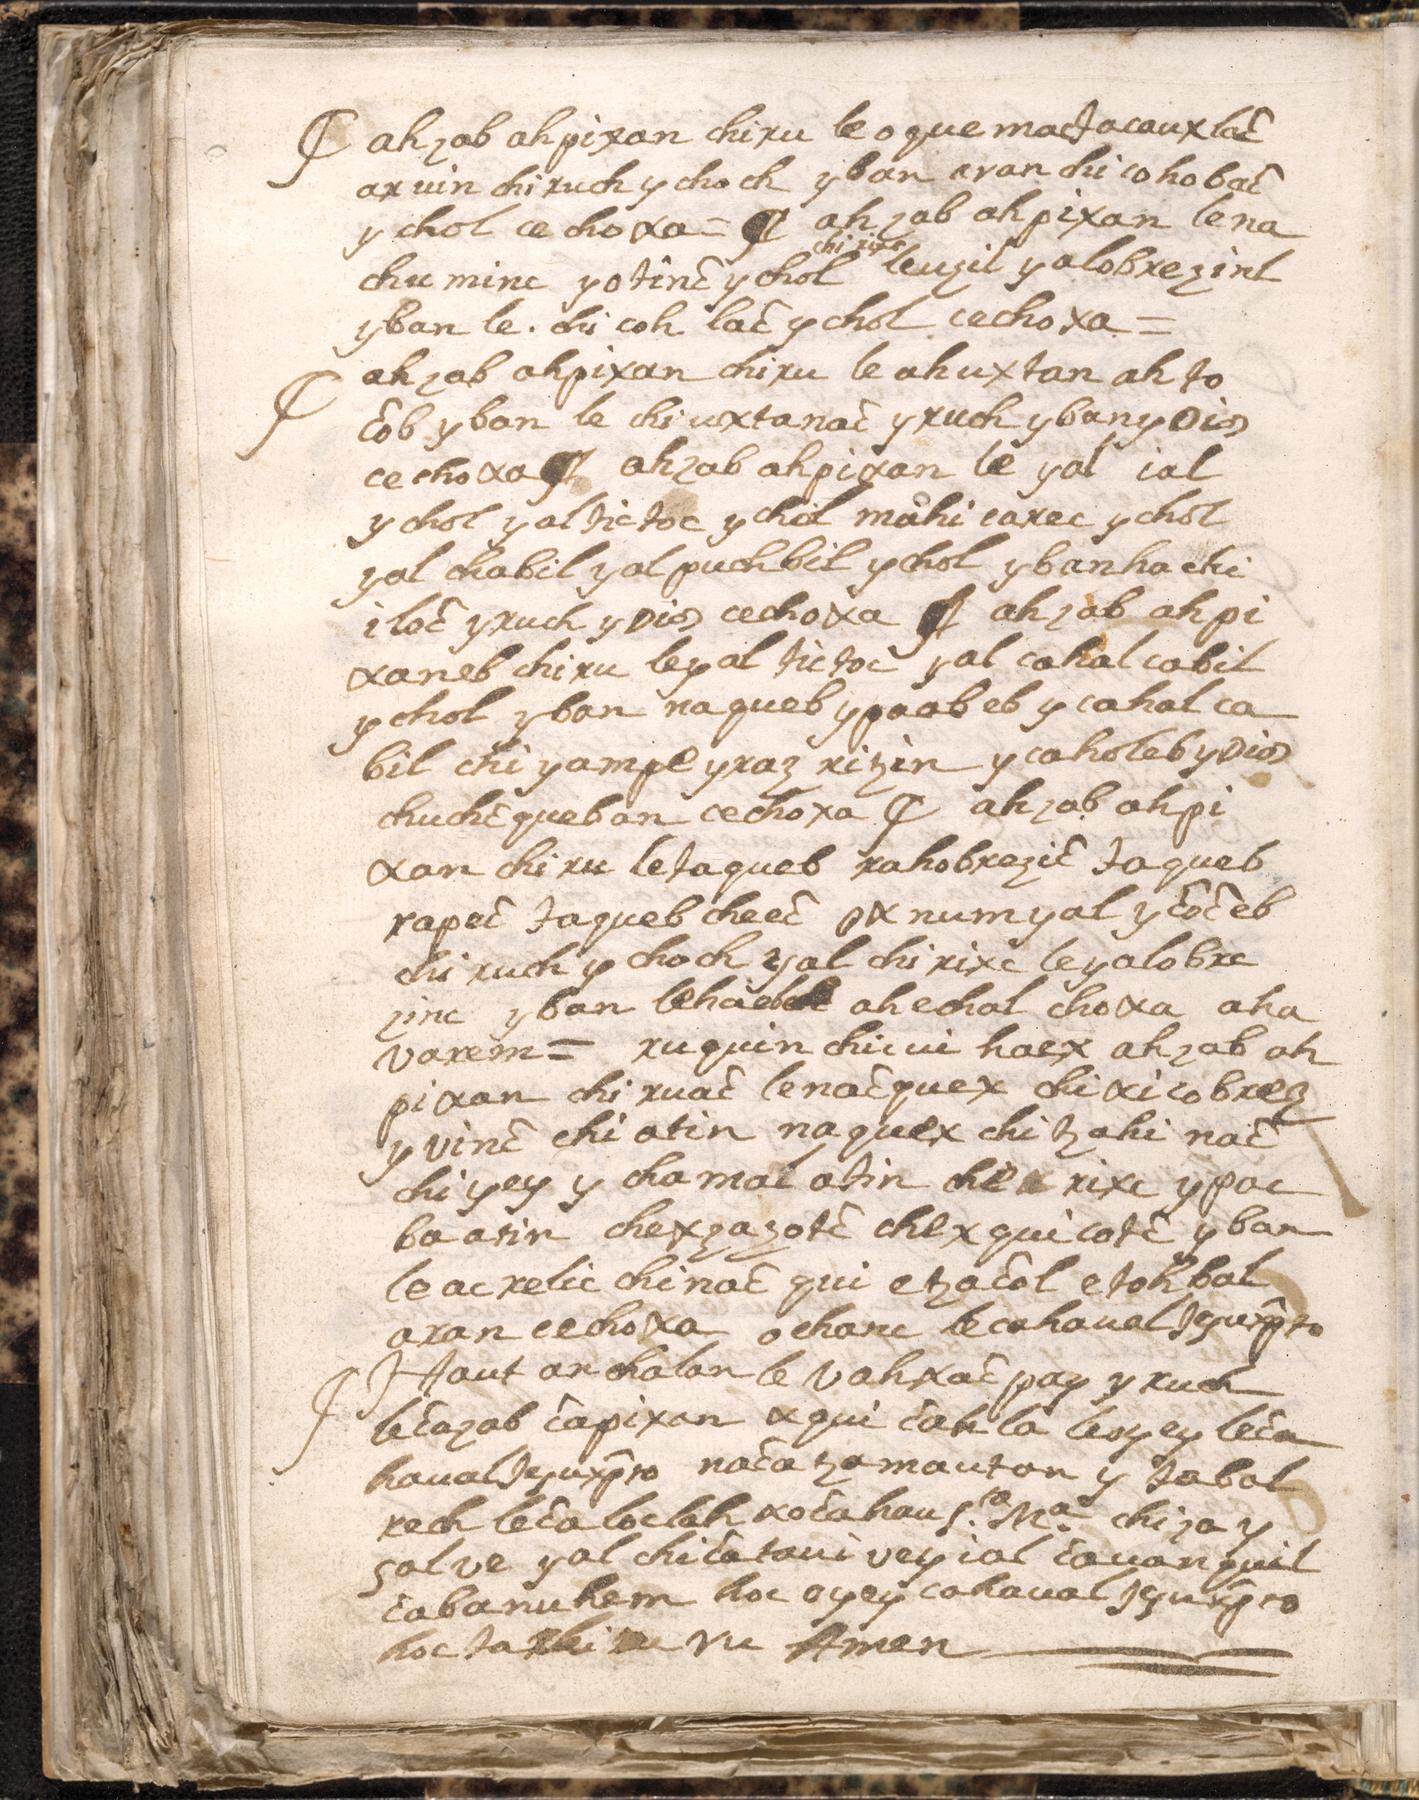 ¶ ahzab ahpixan chiru le oque mactacauxlac̃
arvin chiruch ychoch yban aran chicohobac̃
ychol cechoxa = ¶ ahzab ahpixan lena
chirixc
chuminc yotinc̃ ychol leuzil yalobrezinl
yban le. chicoh lac̃ ychol cechoxa =
¶ ahzab ahpixan chiru le ahuxtan ahto
c̃ob yban le chiuxtanac̃ yruch ybanyDios
cechoxa ¶ ahzab ahpixan le yal ial
ychol yaltictoc ychol mahi carec ychol
yal chabil yalpuchbil ychol ybanhachi
iloc̃ yruch yDios cechoxa ¶ ahzab ahpi
xaneb chiru leyal tictoc yal cahalcabil
ychol yban naqueb ypaabeb ycahalca
bil chi yampe yraz ritzin ycaholeb yDios
chuchc̃queban cechoxa ¶ ahzab ahpi
xan chiru letaqueb rahobrezic̃ taqueb
rapec̃ taqueb cheec̃ ox num yal yc̃oc̃eb
chiruch ychoch yal chirixc leyalobre
zinc yban ahechal choxa aha
varem = ruquin chicui haex ahzab ah
pixan chiruac̃ lenac̃quex chixicobrez
yvinc̃ chi atin naquex chitzahi nac̃
chiyey ychamal atin rixc ypac
baatin chexzazotc̃ chexquicotc̃ yban
leacrelic chinac̃ qui etzac̃ol etohbal
aran cechoxa ochanc lecahaual Jesuxp̃to
¶ Haut archalan le vahxac̃ pay yruch
lec̃azab c̃apixan xqui c̃ahla leyey lec̃a
haualJesuxp̃to nac̃atzamautan y tabal
rech lec̃aloclah xoc̃ahau S.ta M.a chiza y
salve yal chic̃atauivey ial c̃auanquil
c̃abanuhem hoc oyey cahaual Jesuxp̃to
vu Amen